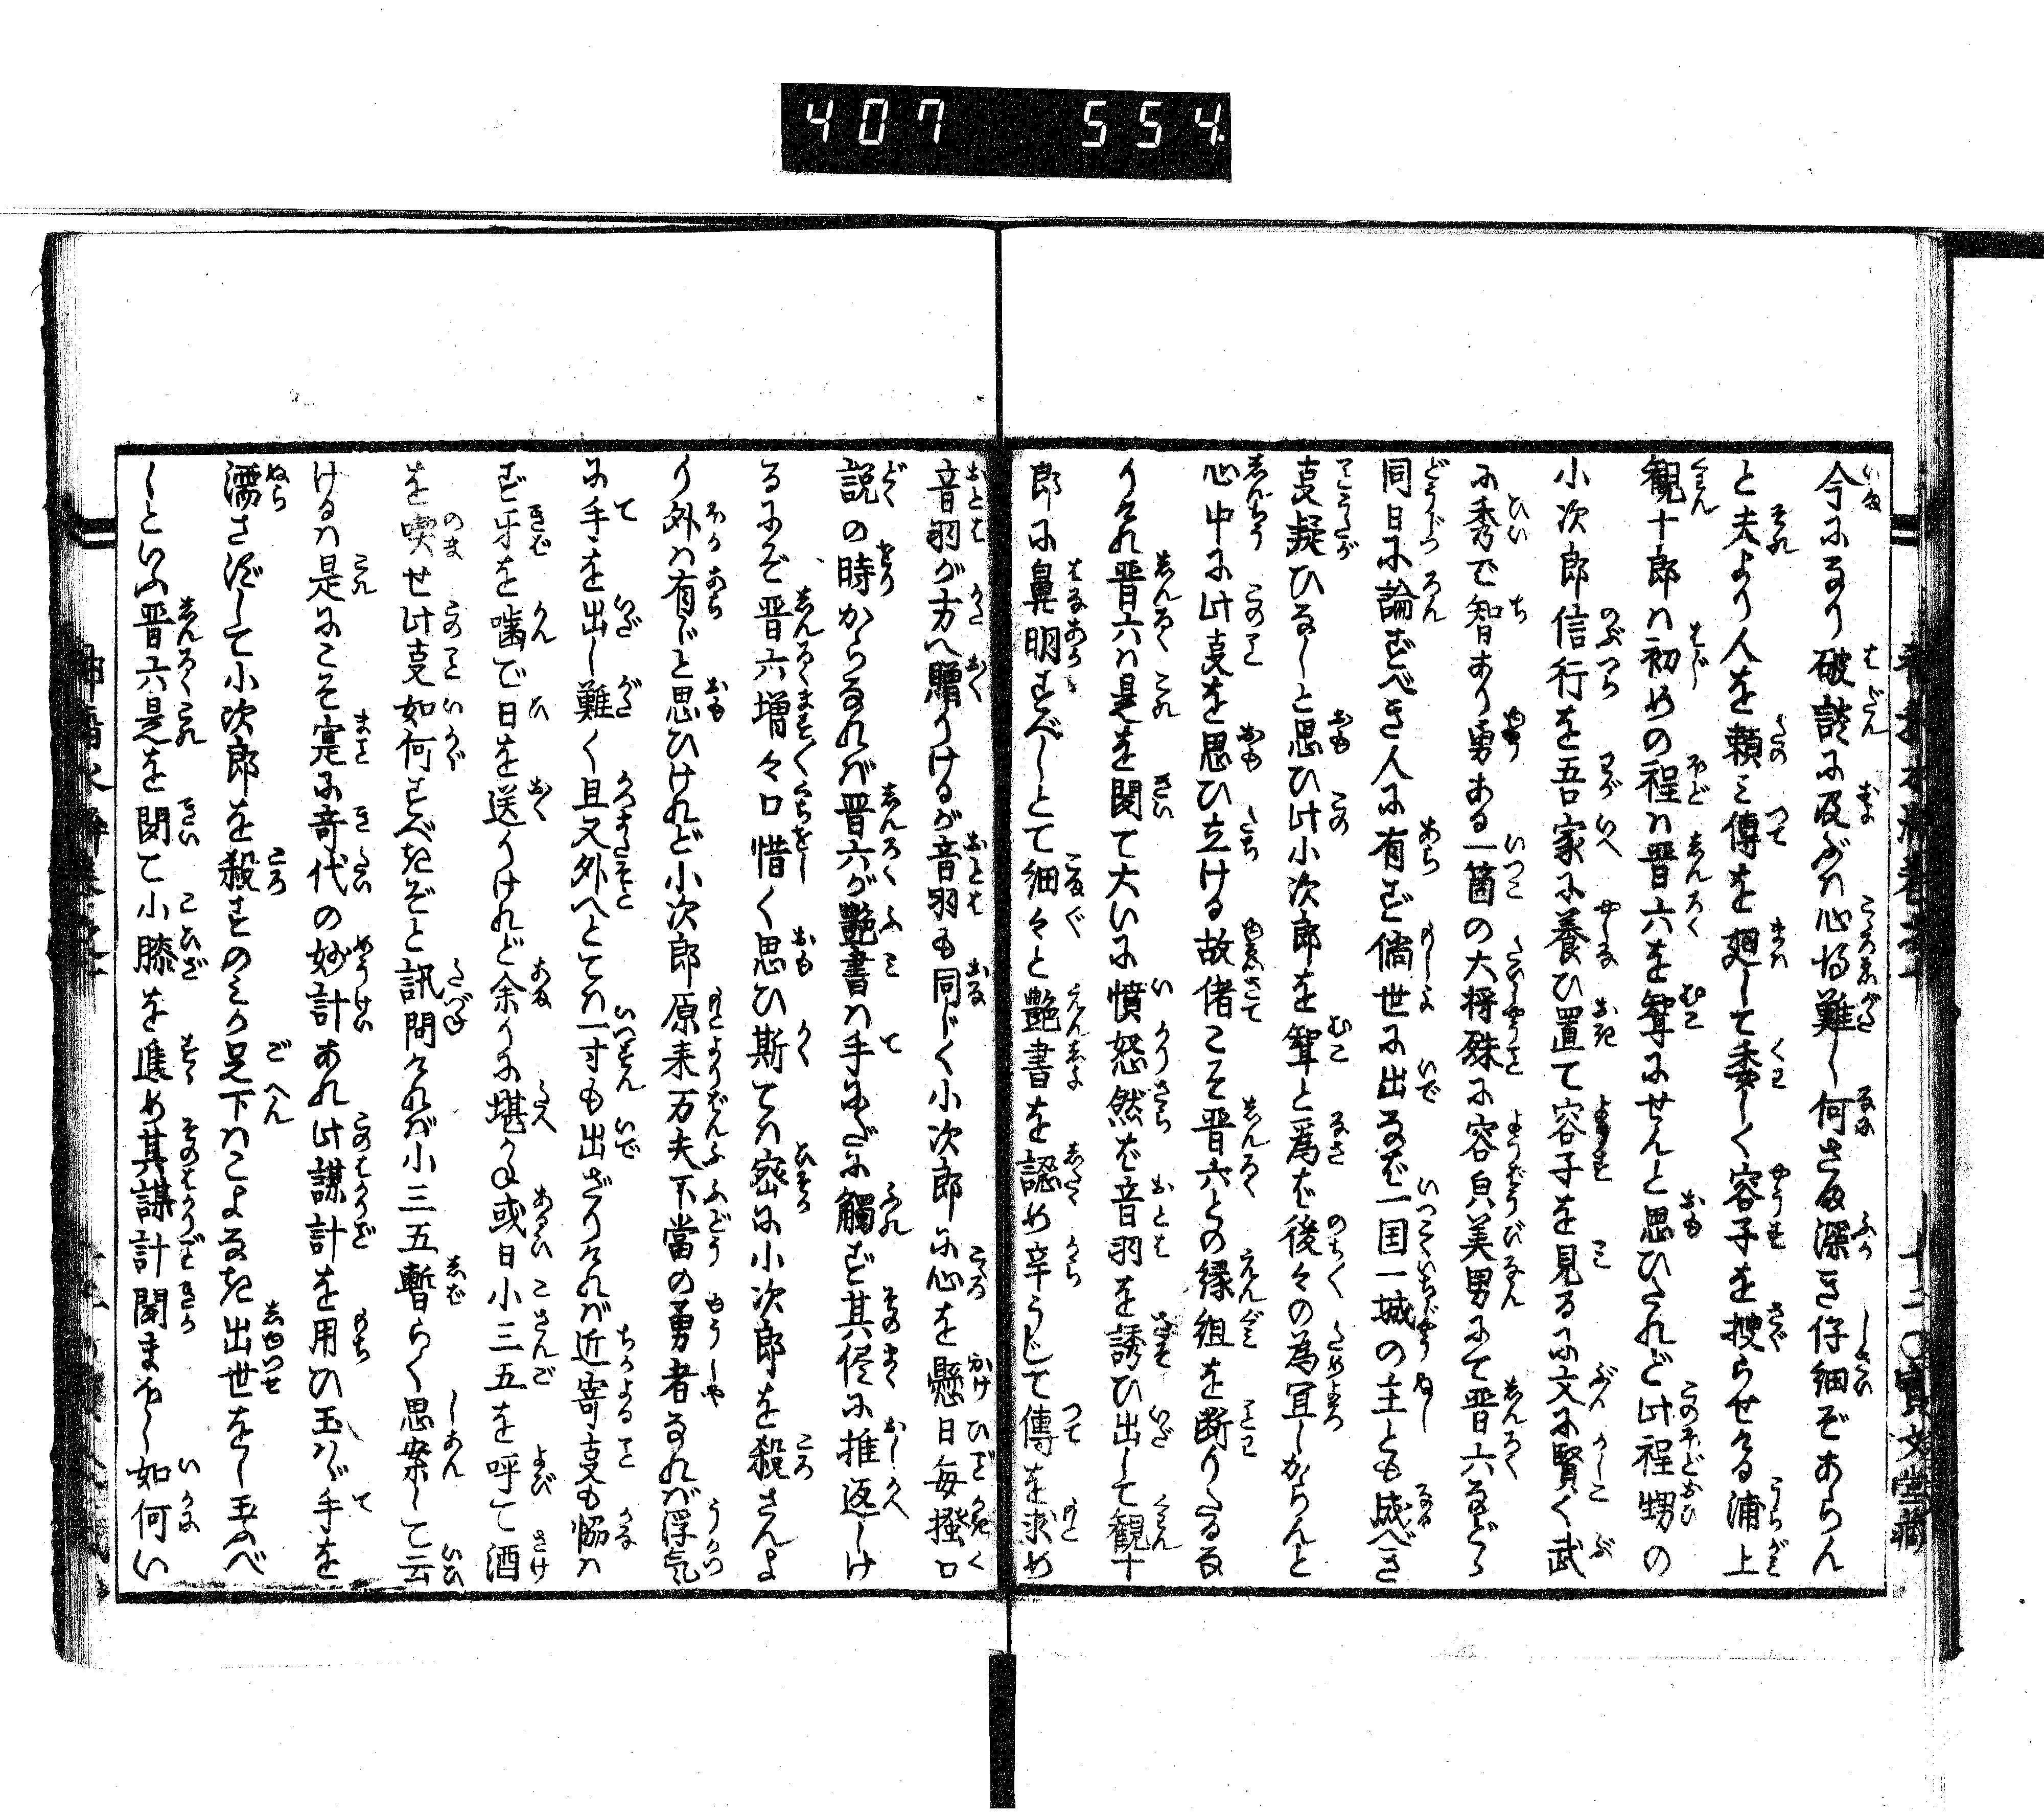 407 554
今になり破談に及ぶハ心得難し何さま深き仔細ぞあらん
と夫より人を頼ミ傳を廻して委しく容子を捜らせける浦上
観十郎ハ初めの程ハ晋六を聟にせんと思ひたれど此程甥の
小次郎信行を吾家に養ひ置て容子を見るに文に賢く武
に秀で智あり勇ある一箇の大将殊に容皃美男にて晋六などゝ
同日に論ずべき人に有ず倘世に出なば一国一城の主とも成べき
叓疑ひなしと思ひ此小次郎を聟と為ば後々の為冝しからんと
心中に此叓を思ひ立ける故偖こそ晋六との縁組を断りたるな
りけれ晋六ハ是を聞て大いに憤怒然ば音羽を誘ひ出して観十
郎に鼻明すべしとて細々と艶書を認め辛うじて傳を求め
音羽が方へ贈りけるが音羽も同じく小次郎に心を懸日毎掻口
説の時からなれバ晋六が艶書ハ手にだに觸ず其侭に推返しけ
るにぞ晋六増々口惜く思ひ斯てハ密に小次郎を殺さんよ
り外ハ有じと思ひけれど小次郎原来万夫不當の勇者なれバ浮気
に手を出し難く且又外へとてハ一寸も出ざりけれバ近寄叓も協ハ
ず牙を噛で日を送りけれど余りに堪かね或日小三五を呼て酒
を喫せ此叓如何すべきぞと訊問けれバ小三五暫らく思案して云
けるハ是にこそ寔に竒代の妙計あれ此謀計を用ひ玉ハヾ手を
濡さずして小次郎を殺すのミか足下ハこよなき出世をし玉ふべ
しといふ晋六是を聞て小膝を進め其謀計聞まほし如何い